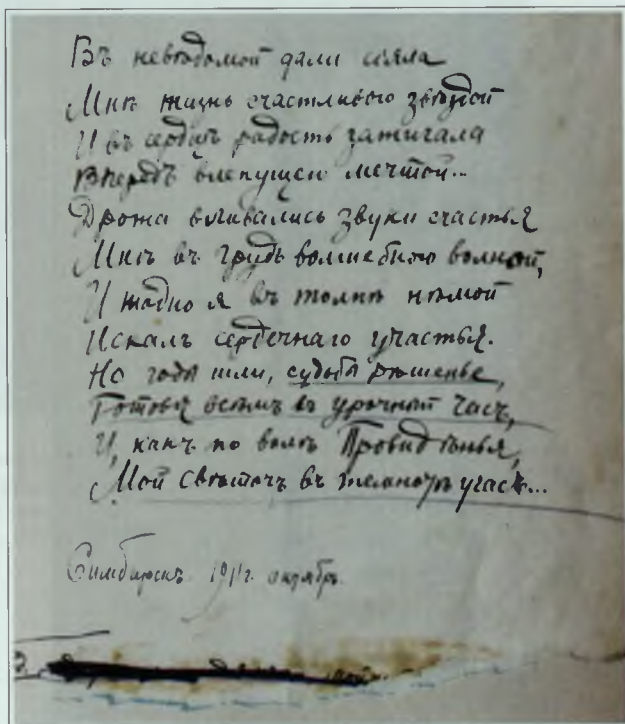 Въ неведомой дали сіяла
Мнѣ жизнь счастливою звѣздой
И въ сердцѣ радость зажигала
Впередъ влекущею мечтой...
Дрожа вливались звуки счастья
Мнѣ въ грудь волшебною волной,
И жадно я въ толпѣ нѣмой
Искалъ сердечнаго участья.
Но годы шли, судьбы рѣшенье,
Готовя всѣмъ въ урочный часъ,
И, какъ по волѣ Провидѣнья,
Мой свѣточъ въ темнотѣ угасъ...
Симбирскъ 1911 г. октябрь